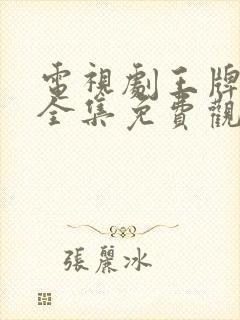 電視劇王牌
全集免費觀
張麗冰